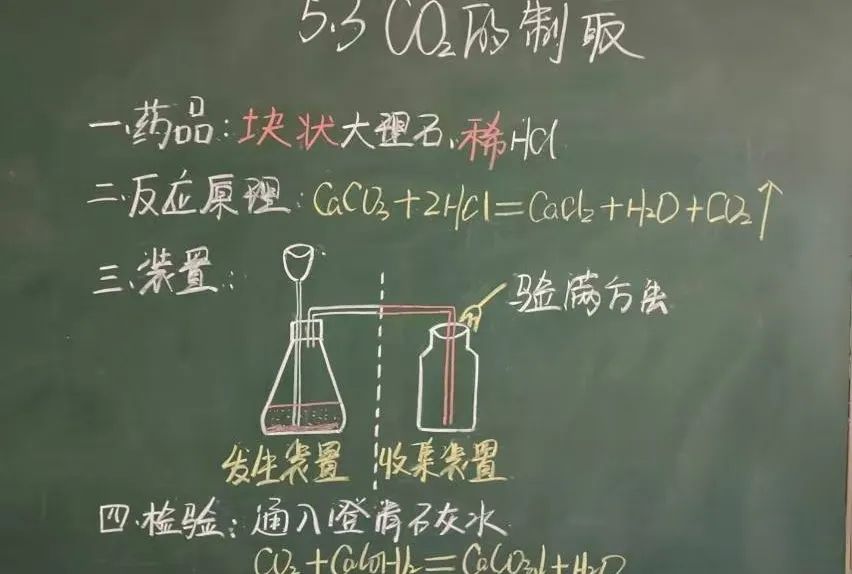 5.3 CO₂的制取
一.药品:块状大理石、稀HCl
二.反应原理:CaCO₃+2HCl=CaCl₂+H₂O+CO₂↑
三.装置:
验满方法
发生装置 收集装置
四.检验:通入澄清石灰水
CO₂+Ca(OH)₂=CaCO₃↓+H₂O